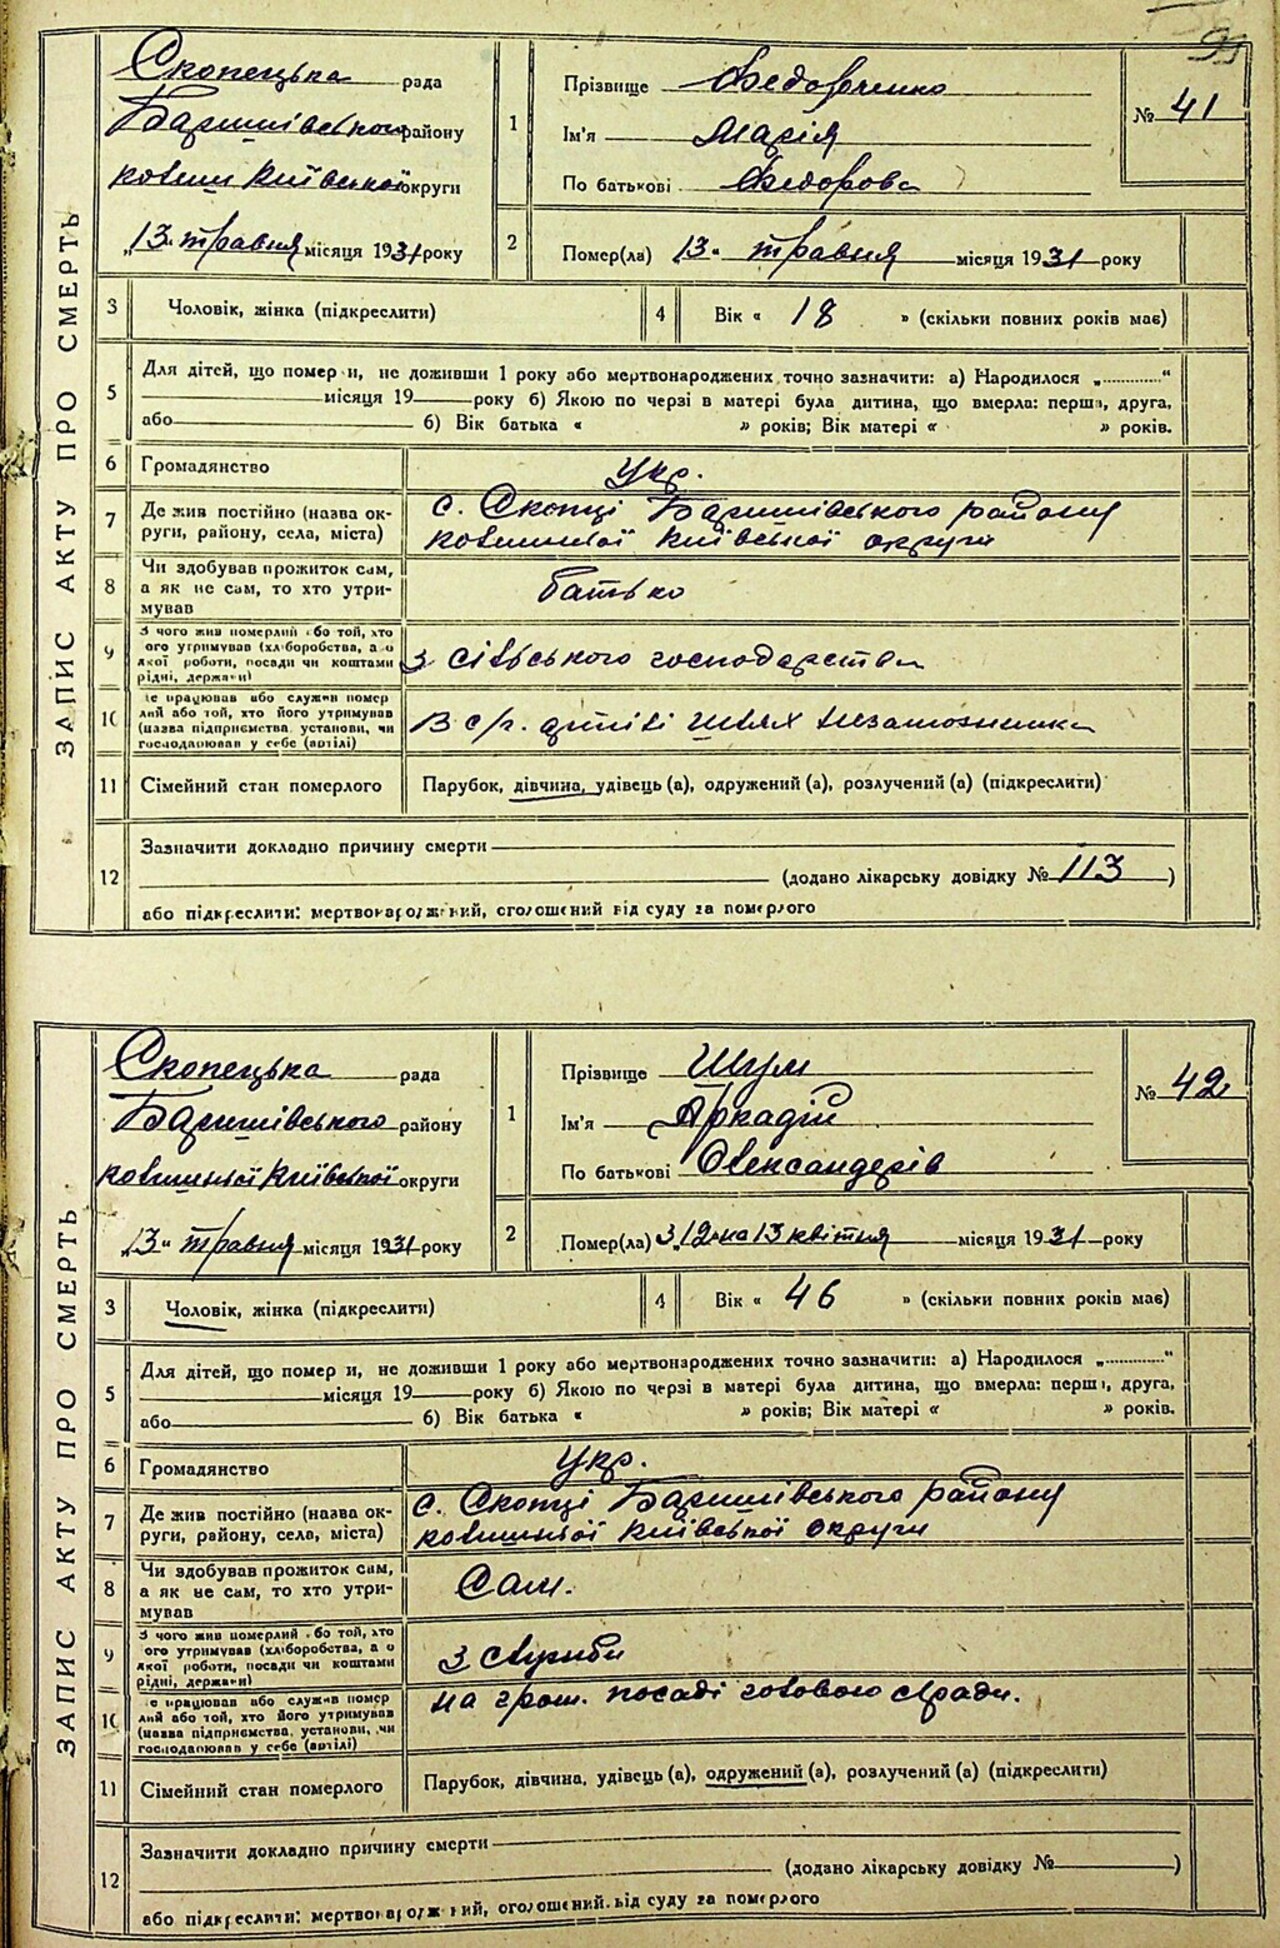 99
ЗАПИС АКТУ ПРО СМЕРТЬ
Скопецька рада
Баришівського району
колиш Київської округи
„13“ травня місяця 1931 року
1
Прізвище Федорченко
Ім'я Марія
По батькові Федорова
№ 41
2
Помер(ла) 13“ травня місяця 1931 року
3
Чоловік, жінка (підкреслити)
4
Вік « 18 » (скільки повних років має)
5
Для дітей, що померли, не доживши 1 року або мертвонароджених точно зазначити: а) Народилося „............“
місяця 19 року б) Якою по черзі в матері була дитина, що вмерла: перша, друга,
або б) Вік батька « » років; Вік матері « » років.
6
Громадянство
укр.
7
Де жив постійно (назва ок-
руги, району, села, міста)
с. Скопці Баришівського району
колишньої Київської округи
8
Чи здобував прожиток сам,
а як не сам, то хто утри-
мував
батько
9
З чого жив померлий або той, хто
його утримував (хліборобства, з
якої роботи, посади чи коштами
рідні, держави)
З сільського господарства
10
Де працював або служив помер
лий або той, хто його утримував
(назва підприємства, установи, чи
господарював у себе (артілі)
В с/г. артілі шлях незаможника
11
Сімейний стан померлого
Парубок, дівчина, удівець (а), одружений (а), розлучений (а) (підкреслити)
12
Зазначити докладно причину смерти
(додано лікарську довідку № 113 )
або підкреслити: мертвонароджений, оголошений від суду за померлого
ЗАПИС АКТУ ПРО СМЕРТЬ
Скопецька рада
Баришівського району
колишньої Київської округи
„13“ травня місяця 1931 року
1
Прізвище Шум
Ім'я Аркадій
По батькові Олександрів
№ 42
2
Помер(ла) з „12“ на 13 квітня місяця 1931 року
3
Чоловік, жінка (підкреслити)
4
Вік « 46 » (скільки повних років має)
5
Для дітей, що померли, не доживши 1 року або мертвонароджених точно зазначити: а) Народилося „............“
місяця 19 року б) Якою по черзі в матері була дитина, що вмерла: перша, друга,
або б) Вік батька « » років; Вік матері « » років.
6
Громадянство
укр.
7
Де жив постійно (назва ок-
руги, району, села, міста)
с. Скопці Баришівського району
колишньої Київської округи
8
Чи здобував прожиток сам,
а як не сам, то хто утри-
мував
Сам.
9
З чого жив померлий або той, хто
його утримував (хліборобства, з
якої роботи, посади чи коштами
рідні, держави)
З служби
10
Де працював або служив помер
лий або той, хто його утримував
(назва підприємства, установи, чи
господарював у себе (артілі)
на гром. посаді головою с/ради.
11
Сімейний стан померлого
Парубок, дівчина, удівець (а), одружений (а), розлучений (а) (підкреслити)
12
Зазначити докладно причину смерти
(додано лікарську довідку № )
або підкреслити: мертвонароджений, оголошений від суду за померлого